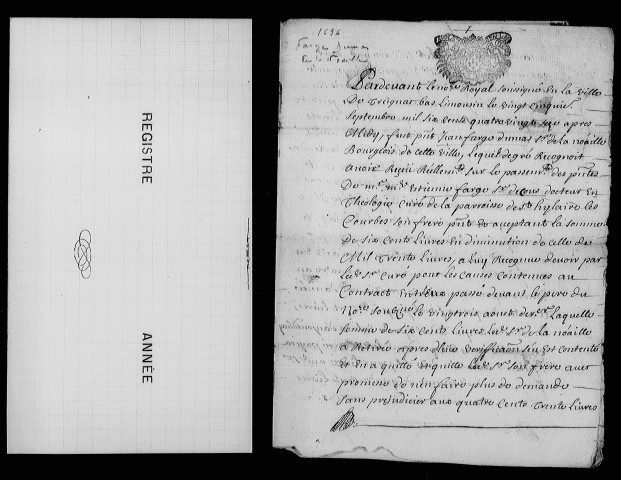 REGISTRE
ANNÉE
Farge Dumas
Pardevant le no.re Royal soubsigné en la ville
De Treignac bas Limousin le vingt cinquie.
Septembre mil six cents quatre vingt apres
Midy, fust pnt Jean farge dumas sr. de la noaille
Bourgeois de cette ville, lequel de gré Recognoit
avoir Receu Réllem.t sur le passem.t des pntes
De mr. me. estienne farge sr. docteur en
Theologie curé de la parroisse de st. hylaire les
Courbes son frere pnt et aceptant la somme
De six cents Livres en diminution de celle de
Mil Trente Livres, a luy Recognue devoir par
Led. sr. curé pour les causes contenues au
Contract entreux passé devant le pere du
No.re soubsigné le vingtrois aoust der.er Laquelle
somme de six cents Livres Led. sr. de la noaille
a Retirée apres dheue verification sen est contenté
et en a quitté et quitte Led. sr. son frere avec
promesse de nen faire plus de demande
sans prejudicier aux quatre cents Trente Livres